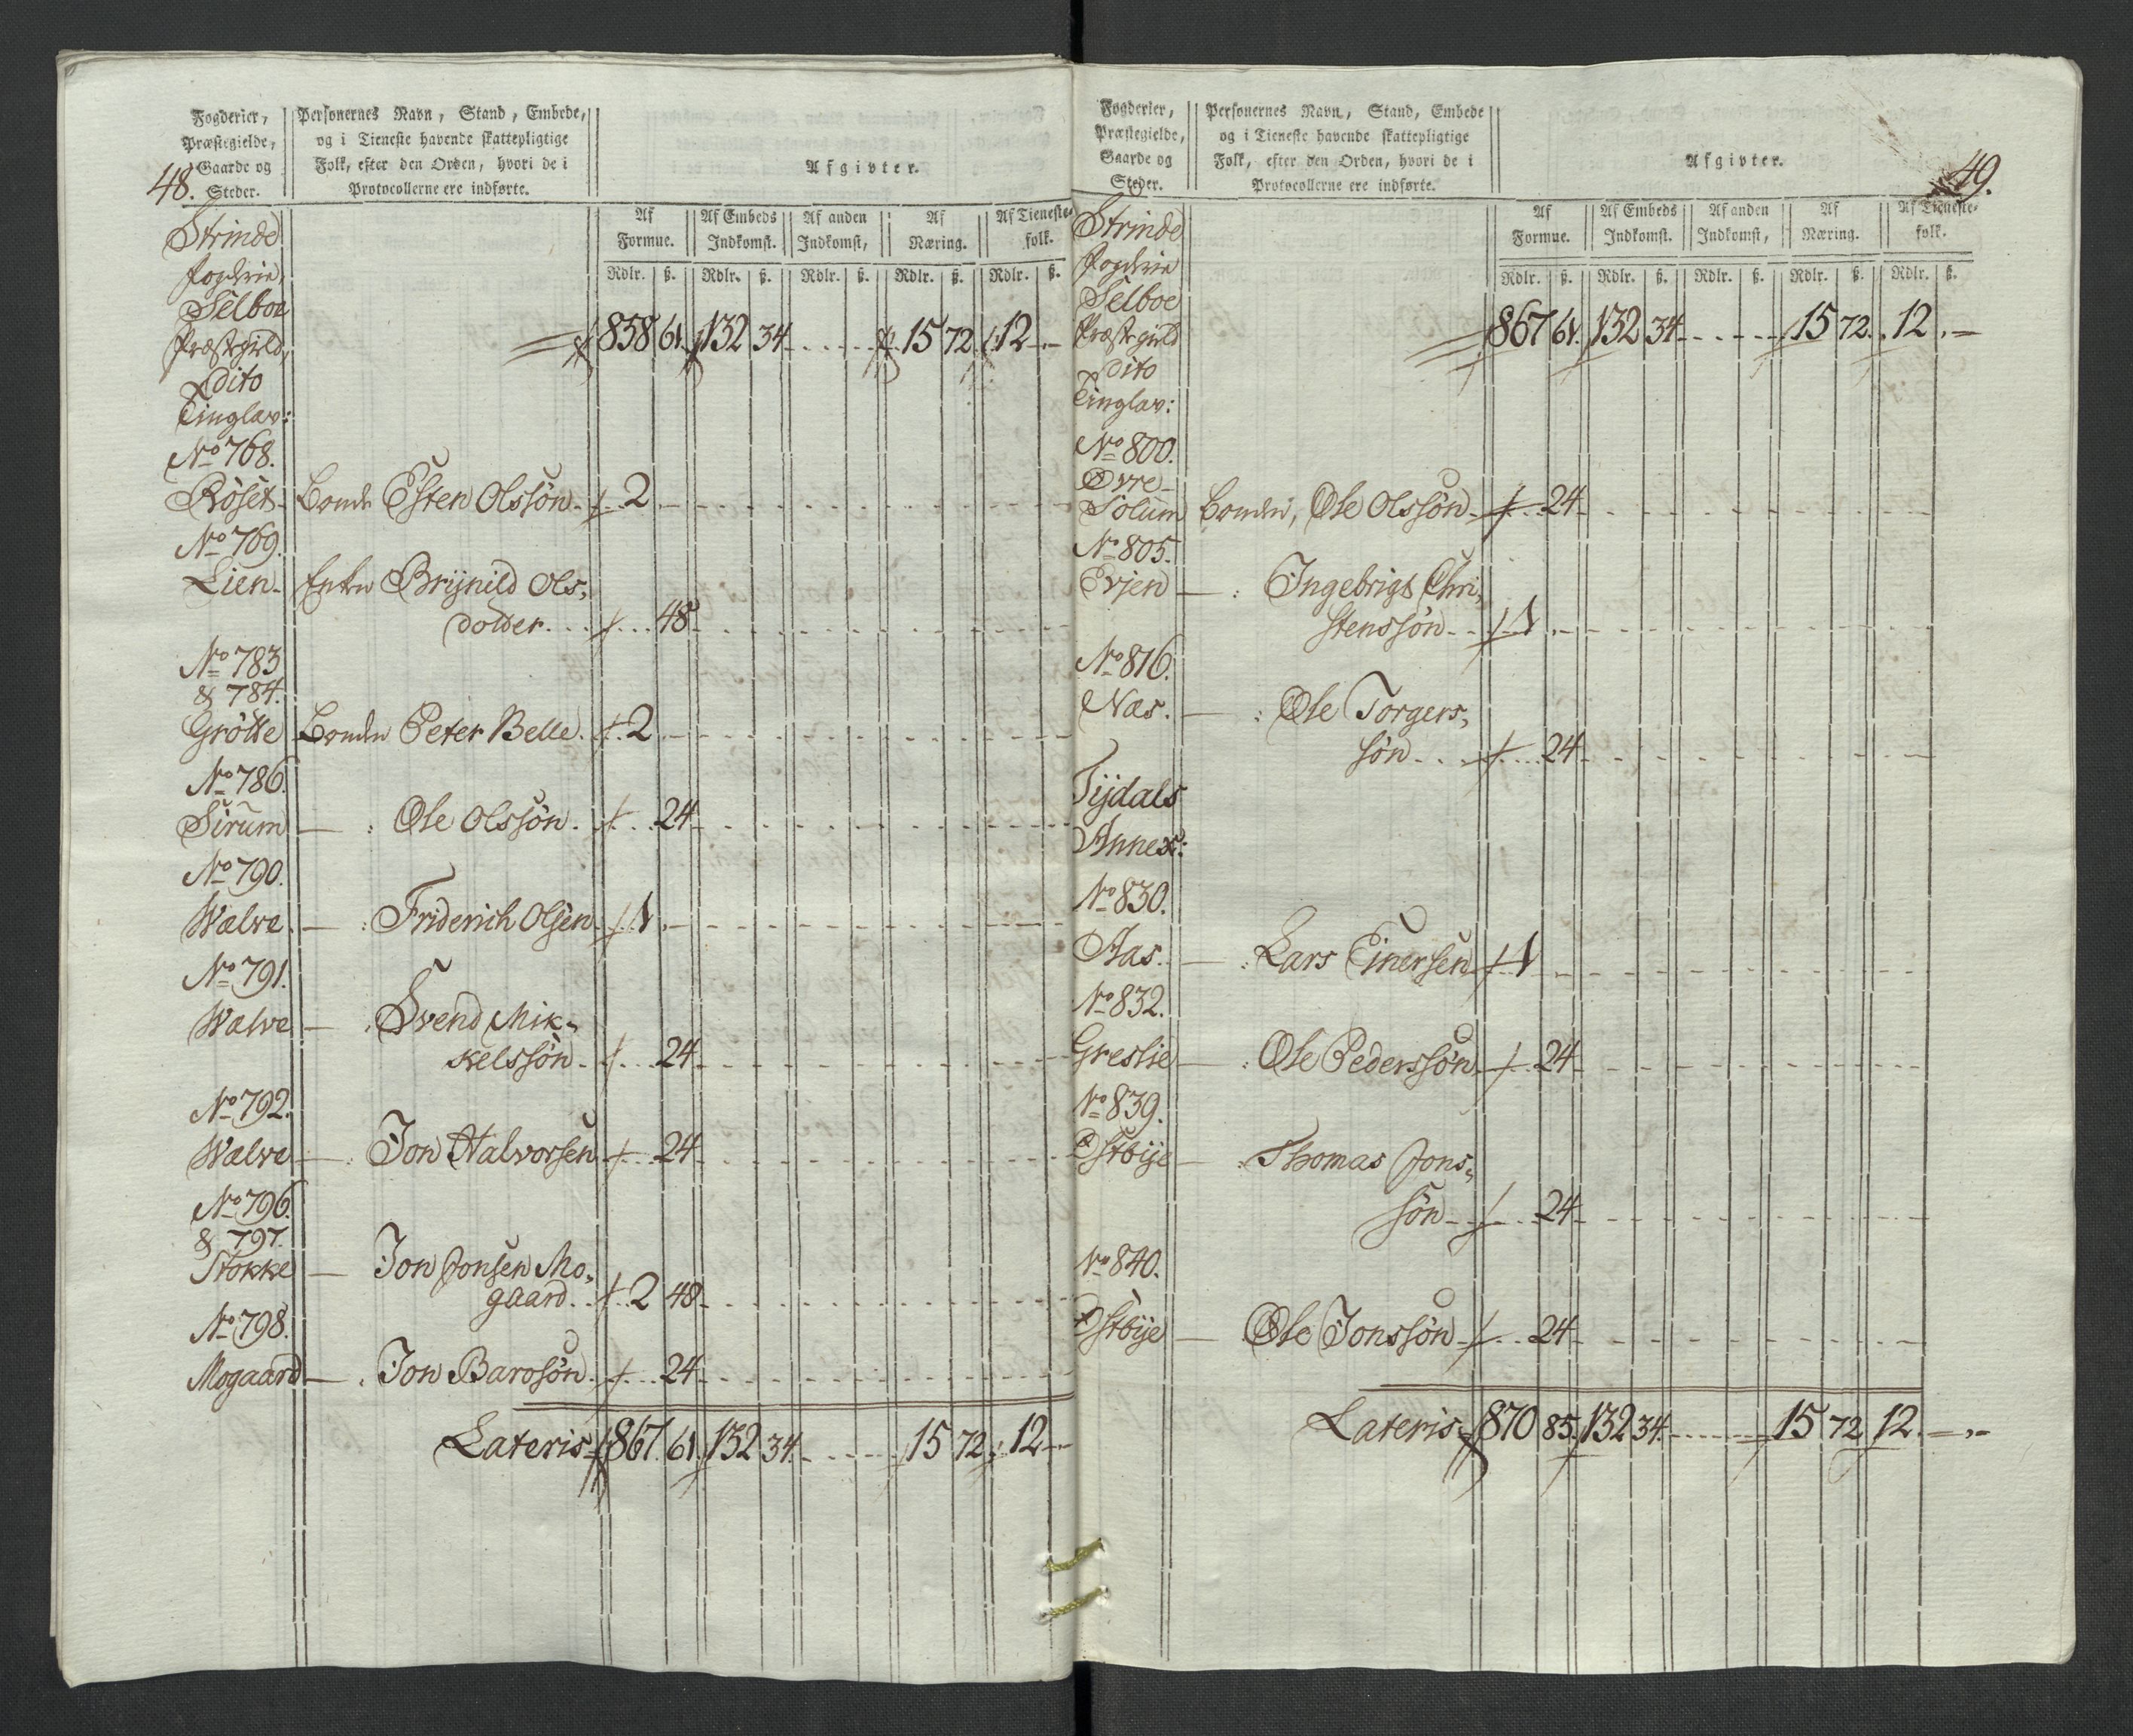 48.
Fogderier,
Præstegielde,
Gaarde og
Steder.
Personernes Navn, Stand, Embede,
og i Tieneste havende skattepligtige
Folk, efter den Orden, hvori de i
Protocollerne ere indførte.
Afgivter.
Af Formue.
Af Embeds Indkomst.
Af anden Indkomst,
Af Næring.
Af Tieneste-folk.
Rdlr. ß. Rdlr. ß. Rdlr. ß. Rdlr. ß. Rdlr. ß.
Strinde
Fogderie,
Selboe
Præstegield, 858 61. 132 34. 15 72. 12.
dito
Tinglav:
No 768.
Röset Bonde Esten Olssön 2
No 769.
Lien Enken Brijnild Ols,
dotter 48
No 783
& 784.
Grötte Bonden Peter Belle. 2
No 786.
Sirum : Ole Olssön. 24
No 790.
Walve : Friderich Olsen 1
No 791.
Walve Svend Mik-
kelssön 24
No 792.
Walve : Jon Halvorsen 24
No 796.
& 797.
Stokke Jon Jonsen Mo,
gaard 2 48
No 798.
Mogaard Jon Barosön 24
Lateris 867. 61. 132 34. 15 72. 12
49.
Fogderier,
Præstegielde,
Gaarde og
Steder.
Personernes Navn, Stand, Embede
og i Tieneste havende skattepligtige
Folk, efter den Orden, hvori de i
Protocollerne ere indførte.
Afgivter.
Af Formue.
Af Embeds Indkomst.
Af anden Indkomst,
Af Næring.
Af Tieneste-folk.
Rdlr. ß. Rdlr. ß. Rdlr. ß. Rdlr. ß. Rdlr. ß.
Strinde
Fogderie
Selboe
Præstegield 867 61. 132 34. 15 72. 12.
dito
Tinglav:
No 800.
Øvre
Solum Bonden, Ole Olssön 24
No 805.
Evjen : Ingebrigt Chri,
stenssön 1
No 816.
Næs. : Ole Torgers,
sön 24
Tijdals
Annex:
No 830.
Aas. : Lars Einersen 1
No 832.
Greslie : Ole Pederssön 24
No 839.
Østbije : Thomas Jons,
sön 24
No 840.
Østbije Ole Jonssön 24
Lateris 870 85. 132 34. 15 72 12.